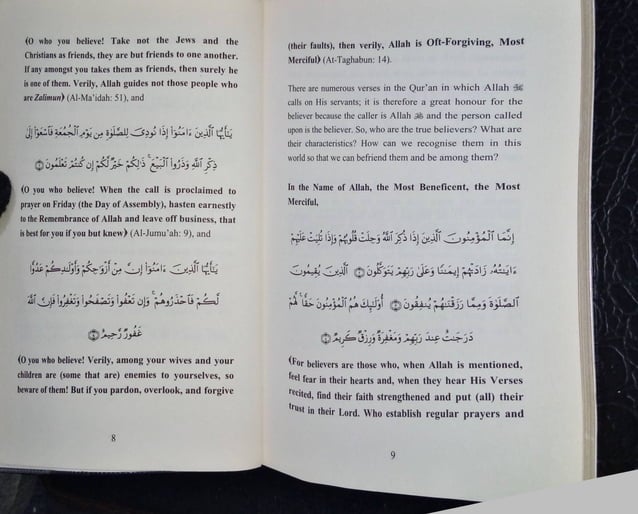 ﴾O who you believe! Take not the Jews and the
Christians as friends, they are but friends to one another.
If any amongst you takes them as friends, then surely he
is one of them. Verily, Allah guides not those people who
are Zalimun﴿ (Al-Ma'idah: 51), and
يَٰٓأَيُّهَا ٱلَّذِينَ ءَامَنُوٓا۟ إِذَا نُودِىَ لِلصَّلَوٰةِ مِن يَوْمِ ٱلْجُمُعَةِ فَٱسْعَوْا۟ إِلَىٰ
ذِكْرِ ٱللَّهِ وَذَرُوا۟ ٱلْبَيْعَ ۚ ذَٰلِكُمْ خَيْرٌ لَّكُمْ إِن كُنتُمْ تَعْلَمُونَ
﴾O you who believe! When the call is proclaimed to
prayer on Friday (the Day of Assembly), hasten earnestly
to the Remembrance of Allah and leave off business, that
is best for you if you but knew﴿ (Al-Jumu'ah: 9), and
يَٰٓأَيُّهَا ٱلَّذِينَ ءَامَنُوٓا۟ إِنَّ مِنْ أَزْوَٰجِكُمْ وَأَوْلَٰدِكُمْ عَدُوًّا
لَّكُمْ فَٱحْذَرُوهُمْ ۚ وَإِن تَعْفُوا۟ وَتَصْفَحُوا۟ وَتَغْفِرُوا۟ فَإِنَّ ٱللَّهَ
غَفُورٌ رَّحِيمٌ
﴾O you who believe! Verily, among your wives and your
children are (some that are) enemies to yourselves, so
beware of them! But if you pardon, overlook, and forgive
8
(their faults), then verily, Allah is Oft-Forgiving, Most
Merciful﴿ (At-Taghabun: 14).
There are numerous verses in the Qur'an in which Allah ﷻ
calls on His servants; it is therefore a great honour for the
believer because the caller is Allah ﷻ and the person called
upon is the believer. So, who are the true believers? What are
their characteristics? How can we recognise them in this
world so that we can befriend them and be among them?
In the Name of Allah, the Most Beneficent, the Most
Merciful,
إِنَّمَا ٱلْمُؤْمِنُونَ ٱلَّذِينَ إِذَا ذُكِرَ ٱللَّهُ وَجِلَتْ قُلُوبُهُمْ وَإِذَا تُلِيَتْ عَلَيْهِمْ
ءَايَٰتُهُۥ زَادَتْهُمْ إِيمَٰنًا وَعَلَىٰ رَبِّهِمْ يَتَوَكَّلُونَ ٱلَّذِينَ يُقِيمُونَ
ٱلصَّلَوٰةَ وَمِمَّا رَزَقْنَٰهُمْ يُنفِقُونَ أُو۟لَٰٓئِكَ هُمُ ٱلْمُؤْمِنُونَ حَقًّا ۚ لَّهُمْ
دَرَجَٰتٌ عِندَ رَبِّهِمْ وَمَغْفِرَةٌ وَرِزْقٌ كَرِيمٌ
﴾For believers are those who, when Allah is mentioned,
feel fear in their hearts and, when they hear His Verses
recited, find their faith strengthened and put (all) their
trust in their Lord. Who establish regular prayers and
9